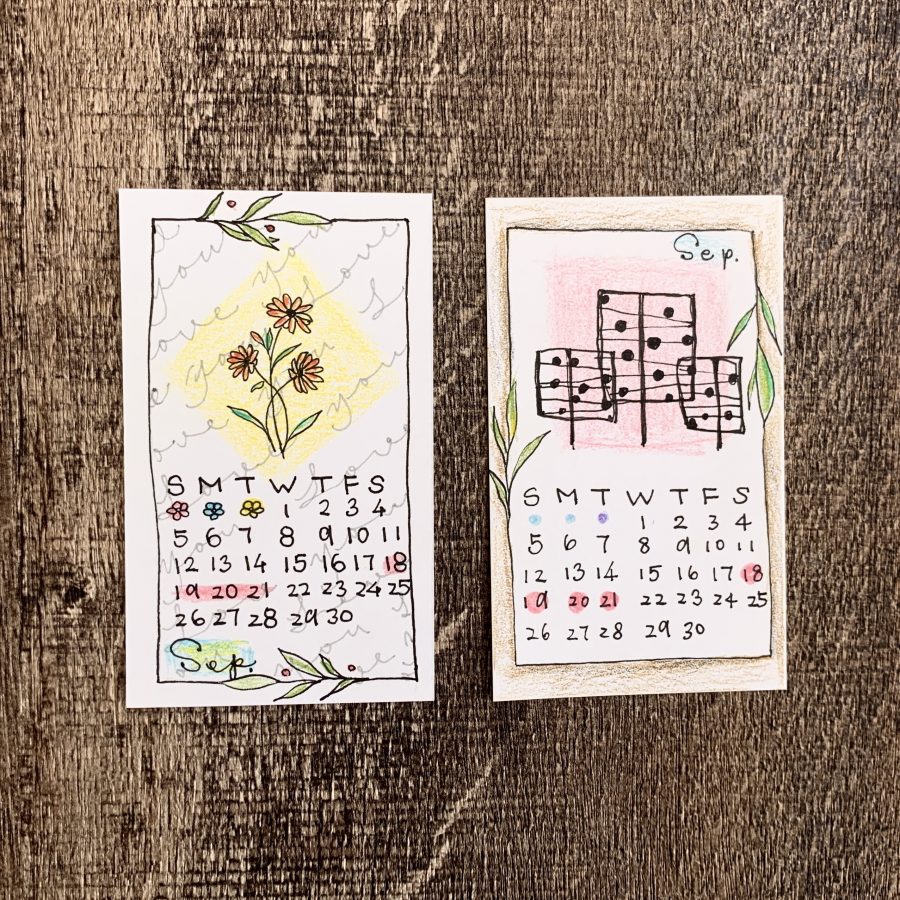 you Love you Love
Love you
love you
S M T W T F S
1 2 3 4
5 6 7 8 9 10 11
12 13 14 15 16 17 18
19 20 21 22 23 24 25
26 27 28 29 30
Sep.
Sep.
S M T W T F S
1 2 3 4
5 6 7 8 9 10 11
12 13 14 15 16 17 18
19 20 21 22 23 24 25
26 27 28 29 30